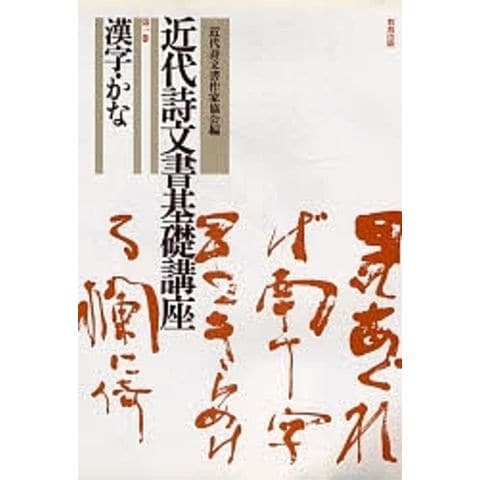 近代詩文書作家協会編
近代詩文書基礎講座
第一巻
漢字・かな
あぐれ
ば南十字
きらめけ
る欄に倚